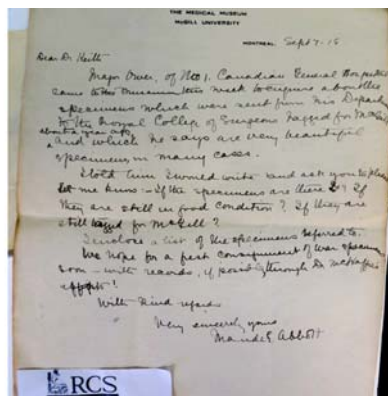 THE MEDICAL MUSEUM
McGILL UNIVERSITY
MONTREAL, Sept 7-18
Dear Dr Keith
Major Ower, of No 1. Canadian General Hospital
came to the Museum this week to enquire about the
specimens which were sent from his Depart.
to the Royal College of Surgeons tagged for McGill
about a year ago,
and which he says are very beautiful
specimens in many cases.
I told him I would write and ask you to please
let me know - If the specimens are there? If
they are still in good condition? If they are
still tagged for McGill?
I enclose a list of the specimens referred to.
We hope for a first consignment of war specimens
soon - with records, if possible, through Dr
efforts!
With kind regards
Very sincerely yours
Maude E Abbott
RCS